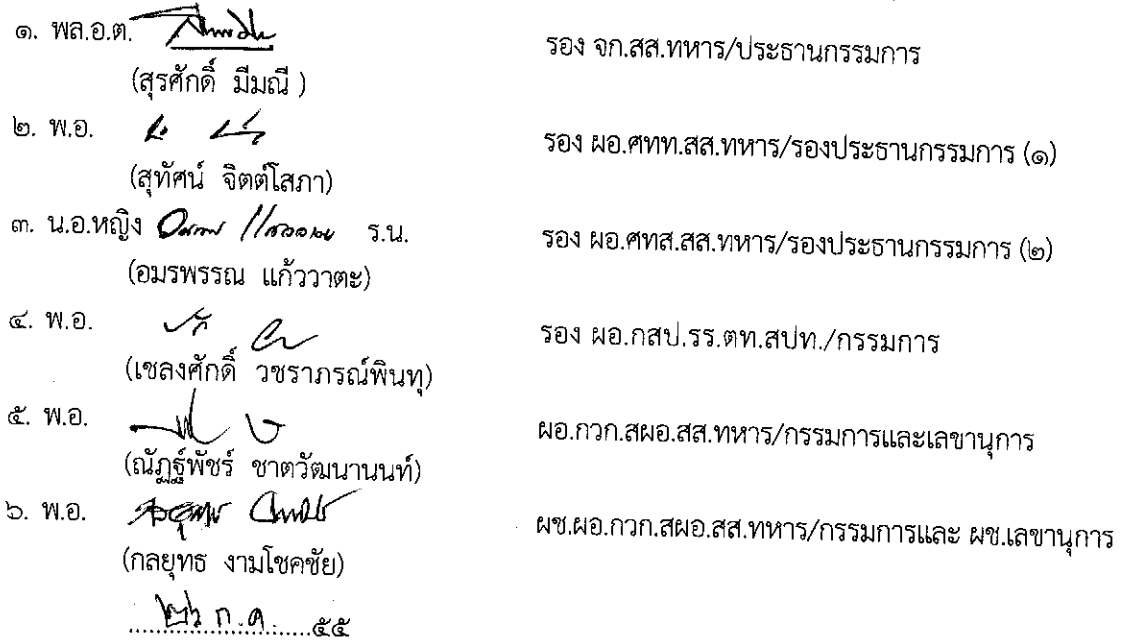 ๑. พล.อ.ต. รอง จก.สส.ทหาร/ประธานกรรมการ
(สุรศักดิ์ มีมณี )
๒. พ.อ. รอง ผอ.ศทท.สส.ทหาร/รองประธานกรรมการ (๑)
(สุทัศน์ จิตต์โสภา)
๓. น.อ.หญิง ร.น. รอง ผอ.ศทส.สส.ทหาร/รองประธานกรรมการ (๒)
(อมรพรรณ แก้ววาตะ)
๔. พ.อ. รอง ผอ.กสป.รร.ตท.สปท./กรรมการ
(เชลงศักดิ์ วชราภรณ์พินทุ)
๕. พ.อ. ผอ.กวก.สผอ.สส.ทหาร/กรรมการและเลขานุการ
(ณัฏฐ์พัชร์ ชาตวัฒนานนท์)
๖. พ.อ. ผช.ผอ.กวก.สผอ.สส.ทหาร/กรรมการและ ผช.เลขานุการ
(กลยุทธ งามโชคชัย)
๒๖ ก.ค. ๕๕